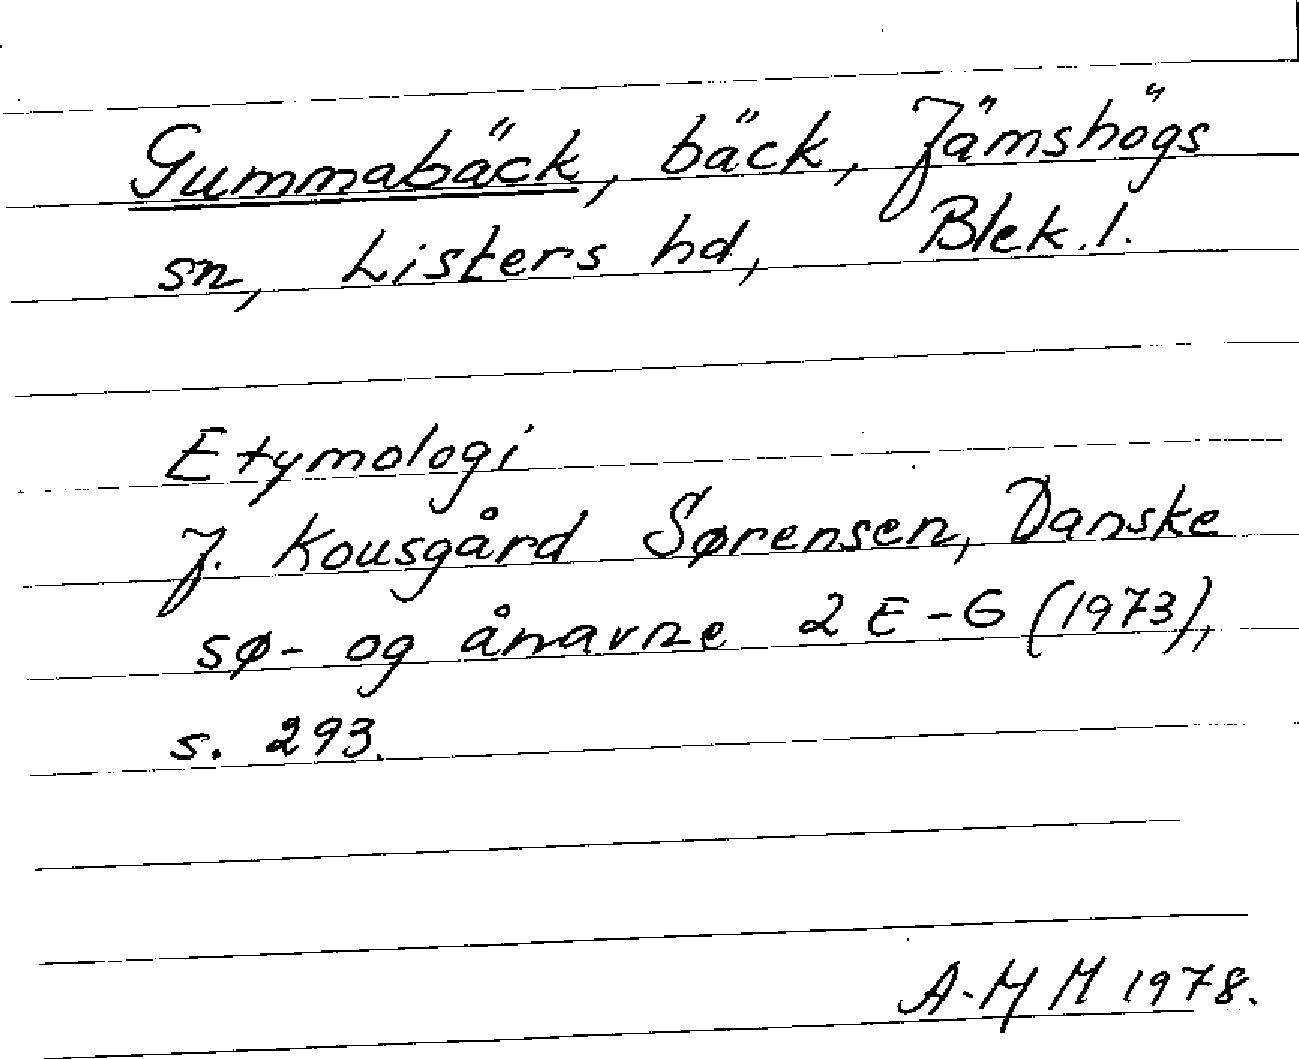 Gummabäck, bäck, Jämshögs
sn, Listers hd, Blek.l.
Etymologi
J. Kousgård Sørensen, Danske
sø- og ånavne 2 E-G (1973),
s. 293.
A-M M 1978.